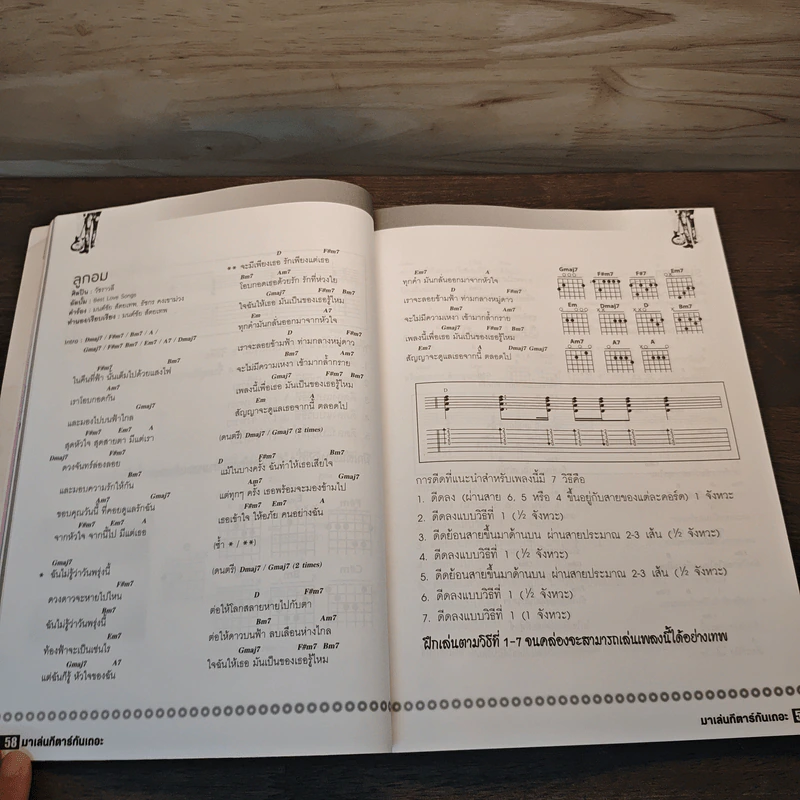 ลูกอม
ศิลปิน : วัชราวลี
อัลบั้ม : Best Love Songs
คำร้อง : มนต์ชัย สัตยเทพ, รัชกร คงเขาม่วง
ทำนอง/เรียบเรียง : มนต์ชัย สัตยเทพ
Intro : Dmaj7 / F#m7 / Bm7 / A /
Gmaj7 / F#m7 Bm7 / Em7 / A7 / Dmaj7
F#m7 Bm7
ในคืนที่ฟ้า นั้นเต็มไปด้วยแสงไฟ
Am7
เราโอบกอดกัน
Gmaj7
และมองไปบนฟ้าไกล
F#m7 Em7 A
สุดหัวใจ สุดสายตา มีแต่เรา
Dmaj7 F#m7
ดวงจันทร์ล่องลอย
Bm7
และมอบความรักให้กัน
Am7 Gmaj7
ขอบคุณวันนี้ ที่คอยดูแลรักฉัน
F#m7 Em7 A
จากหัวใจ จากนี้ไป มีแต่เธอ
Gmaj7
* ฉันไม่รู้ว่าวันพรุ่งนี้
F#m7
ดวงดาวจะหายไปไหน
Bm7
ฉันไม่รู้ว่าวันพรุ่งนี้
Em7
ท้องฟ้าจะเป็นเช่นไร
Gmaj7 A7
แต่ฉันก็รู้ หัวใจของฉัน
D F#m7
** จะมีเพียงเธอ รักเพียงแต่เธอ
Bm7 Am7
โอบกอดเธอด้วยรัก รักที่ห่วงใย
Gmaj7 F#m7 Bm7
ใจฉันให้เธอ มันเป็นของเธอรู้ไหม
Em A
ทุกคำมันกลั่นออกมาจากหัวใจ
D F#m7
เราจะลอยข้ามฟ้า ท่ามกลางหมู่ดาว
Bm7 Am7
จะไม่มีความเหงา เข้ามากล้ำกราย
Gmaj7 F#m7 Bm7
เพลงนี้เพื่อเธอ มันเป็นของเธอรู้ไหม
Em A
สัญญาจะดูแลเธอจากนี้ ตลอดไป
(ดนตรี) Dmaj7 / Gmaj7 (2 times)
D F#m7 Bm7
แม้ในบางครั้ง ฉันทำให้เธอเสียใจ
Am7 Gmaj7
แต่ทุกๆ ครั้ง เธอพร้อมจะมองข้ามไป
F#m7 Em7 A
เธอเข้าใจ ให้อภัย คนอย่างฉัน
(ซ้ำ * / **)
(ดนตรี) Dmaj7 / Gmaj7 (2 times)
D F#m7
ต่อให้โลกสลายหายไปกับตา
Bm7 Am7
ต่อให้ดาวบนฟ้า ลบเลือนห่างไกล
Gmaj7 F#m7 Bm7
ใจฉันให้เธอ มันเป็นของเธอรู้ไหม
58 มาเล่นกีตาร์กันเถอะ
Em7 A
ทุกคำ มันกลั่นออกมาจากหัวใจ
D F#m7
เราจะลอยข้ามฟ้า ท่ามกลางหมู่ดาว
Bm7 Am7
จะไม่มีความเหงา เข้ามากล้ำกราย
Gmaj7 F#m7 Bm7
เพลงนี้เพื่อเธอ มันเป็นของเธอรู้ไหม
Em7 A Dmaj7 Gmaj7
สัญญาจะดูแลเธอจากนี้ ตลอดไป
Gmaj7 F#m7 F#7 Em7
Em Dmaj7 D Bm7
Am7 A7 A
D
การดีดที่แนะนำสำหรับเพลงนี้มี 7 วิธีคือ
1. ดีดลง (ผ่านสาย 6, 5 หรือ 4 ขึ้นอยู่กับสายของแต่ละคอร์ด) 1 จังหวะ
2. ดีดลงแบบวิธีที่ 1 (½ จังหวะ)
3. ดีดย้อนสายขึ้นมาด้านบน ผ่านสายประมาณ 2-3 เส้น (½ จังหวะ)
4. ดีดลงแบบวิธีที่ 1 (½ จังหวะ)
5. ดีดย้อนสายขึ้นมาด้านบน ผ่านสายประมาณ 2-3 เส้น (½ จังหวะ)
6. ดีดลงแบบวิธีที่ 1 (½ จังหวะ)
7. ดีดลงแบบวิธีที่ 1 (1 จังหวะ)
ฝึกเล่นตามวิธีที่ 1-7 จนคล่องจะสามารถเล่นเพลงนี้ได้อย่างเทพ
มาเล่นกีตาร์กันเถอะ